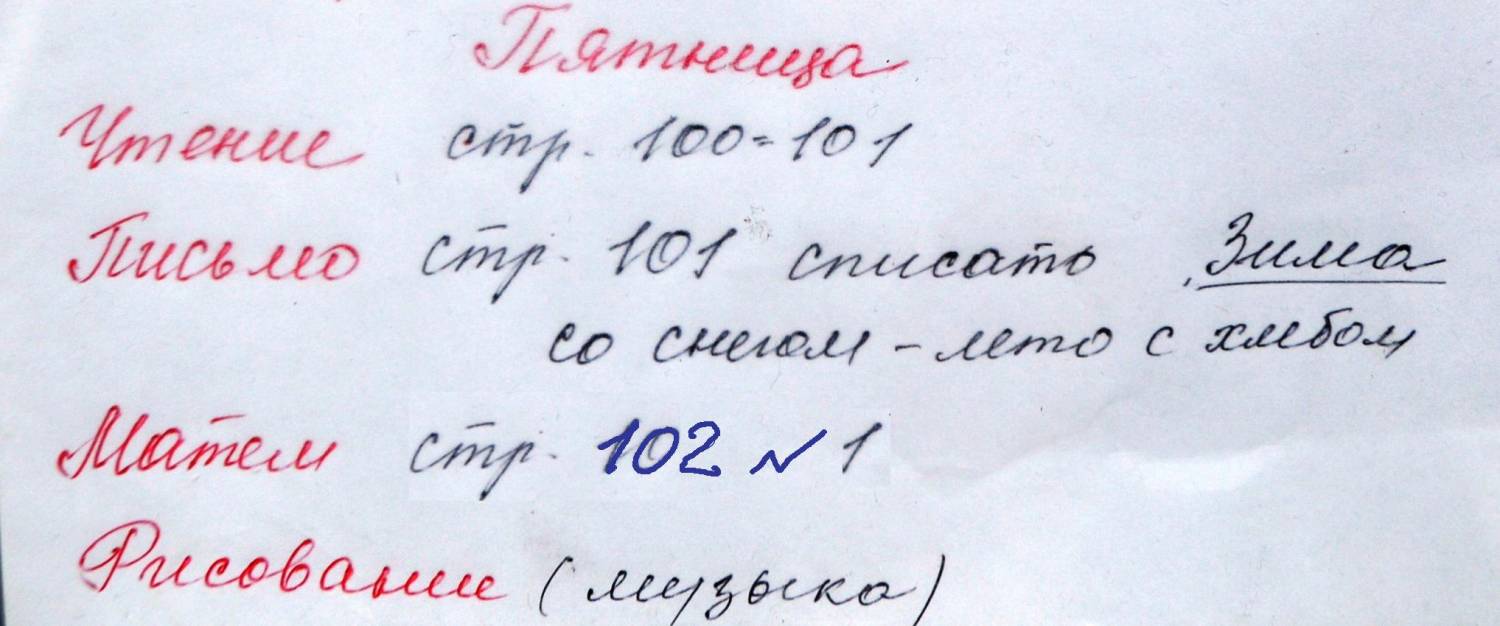 Пятница
Чтение стр. 100-101
Письмо стр. 101 списать Зима
со снегом - лето с хлебом
Матем стр. 102 № 1
Рисование (музыка)